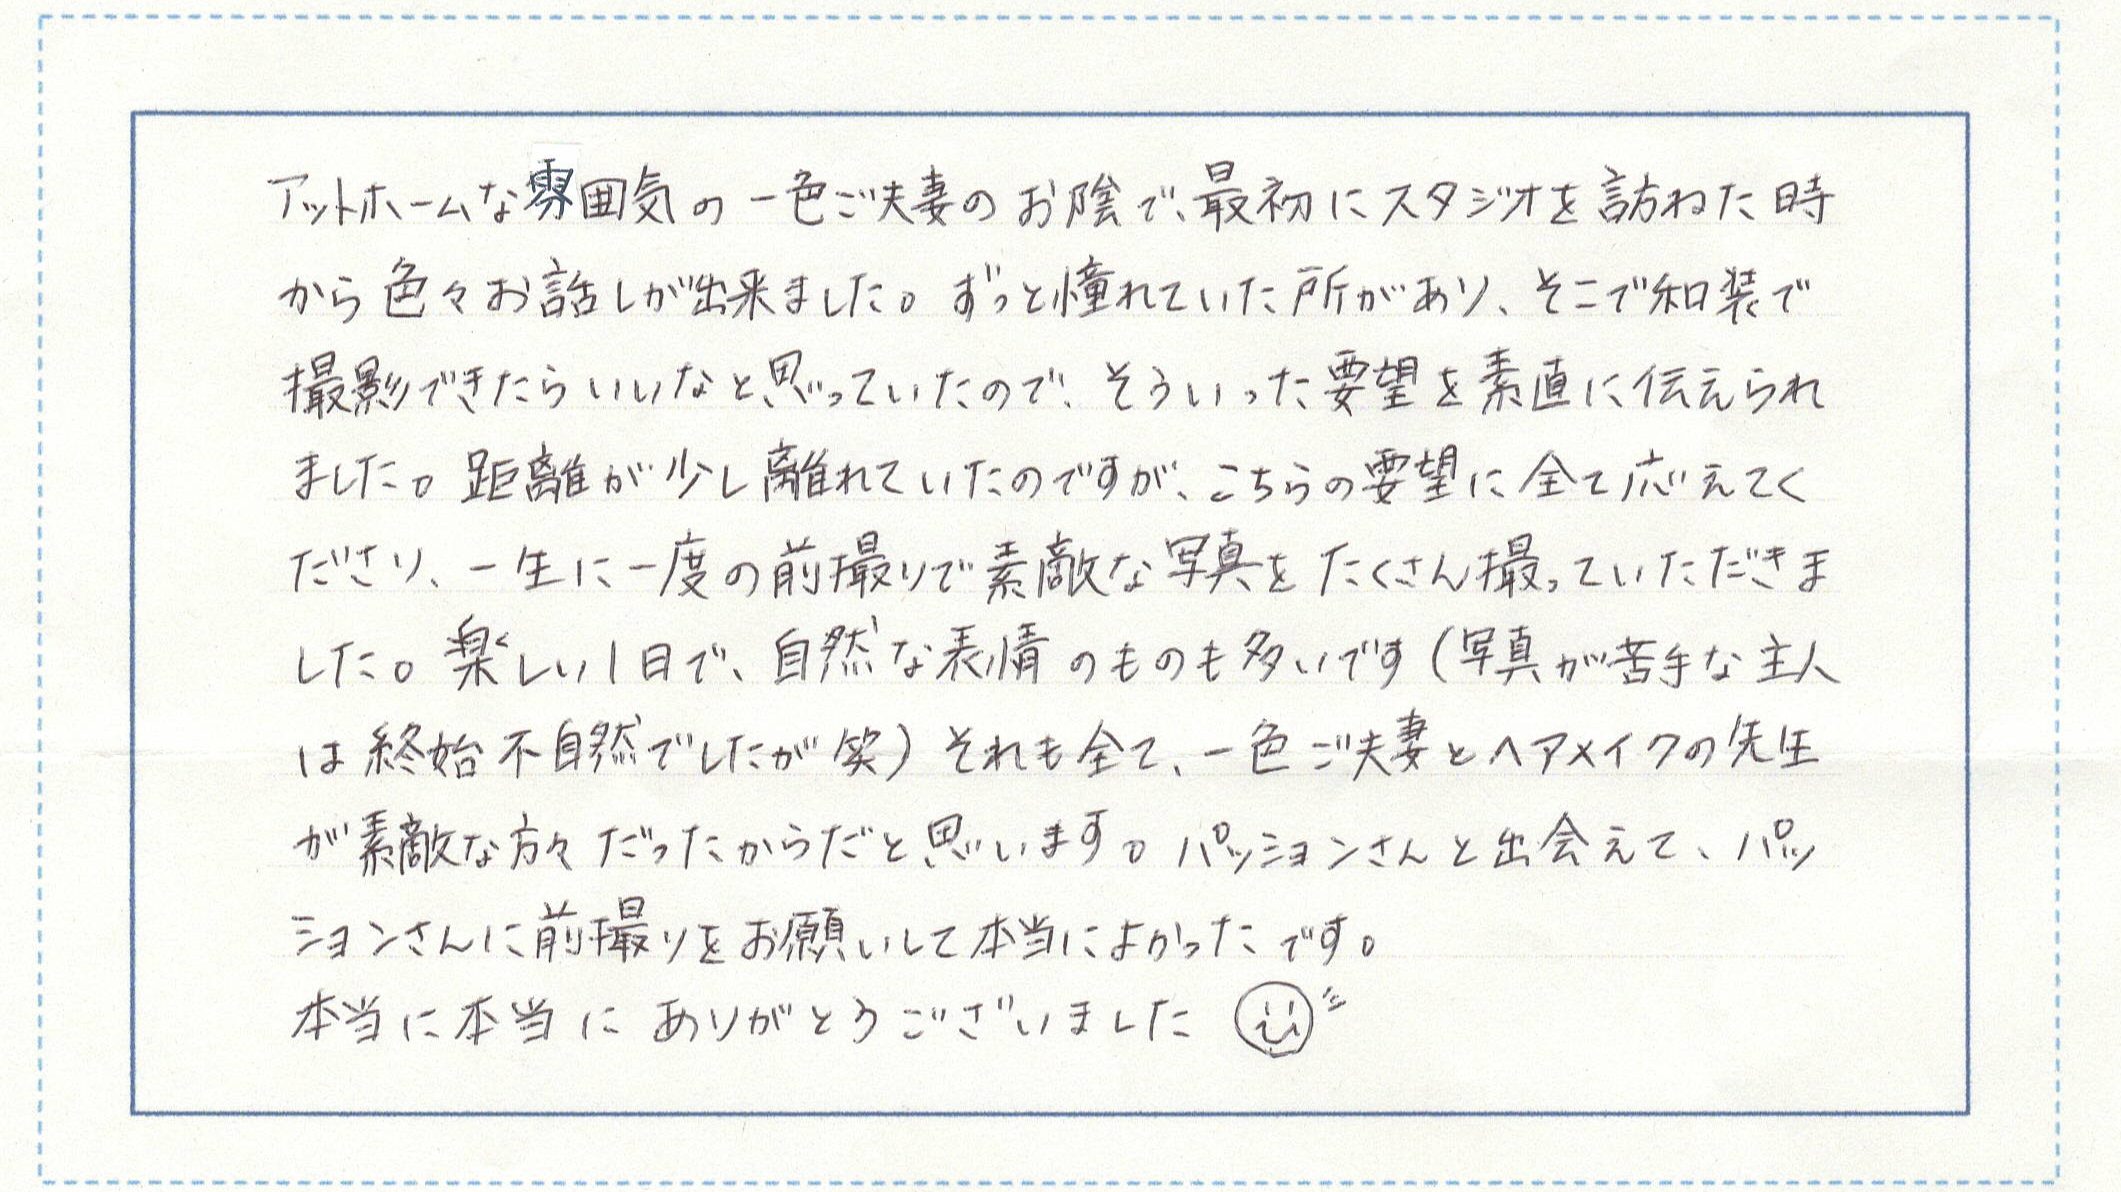 アットホームな雰囲気の一色ご夫妻のお陰で、最初にスタジオを訪ねた時
から色々お話しが出来ました。ずっと憧れていた所があり、そこで和装で
撮影できたらいいなと思っていたので、そういった要望を素直に伝えられ
ました。距離が少し離れていたのですが、こちらの要望に全て応えてく
ださり、一生に一度の前撮りで素敵な写真をたくさん撮っていただきま
した。楽しい1日で、自然な表情のものも多いです(写真が苦手な主人
は終始不自然でしたが笑)それも全て、一色ご夫妻とヘアメイクの先生
が素敵な方々だったからだと思います。パッションさんと出会えて、パッ
ションさんに前撮りをお願いして本当によかったです。
本当に本当にありがとうございました